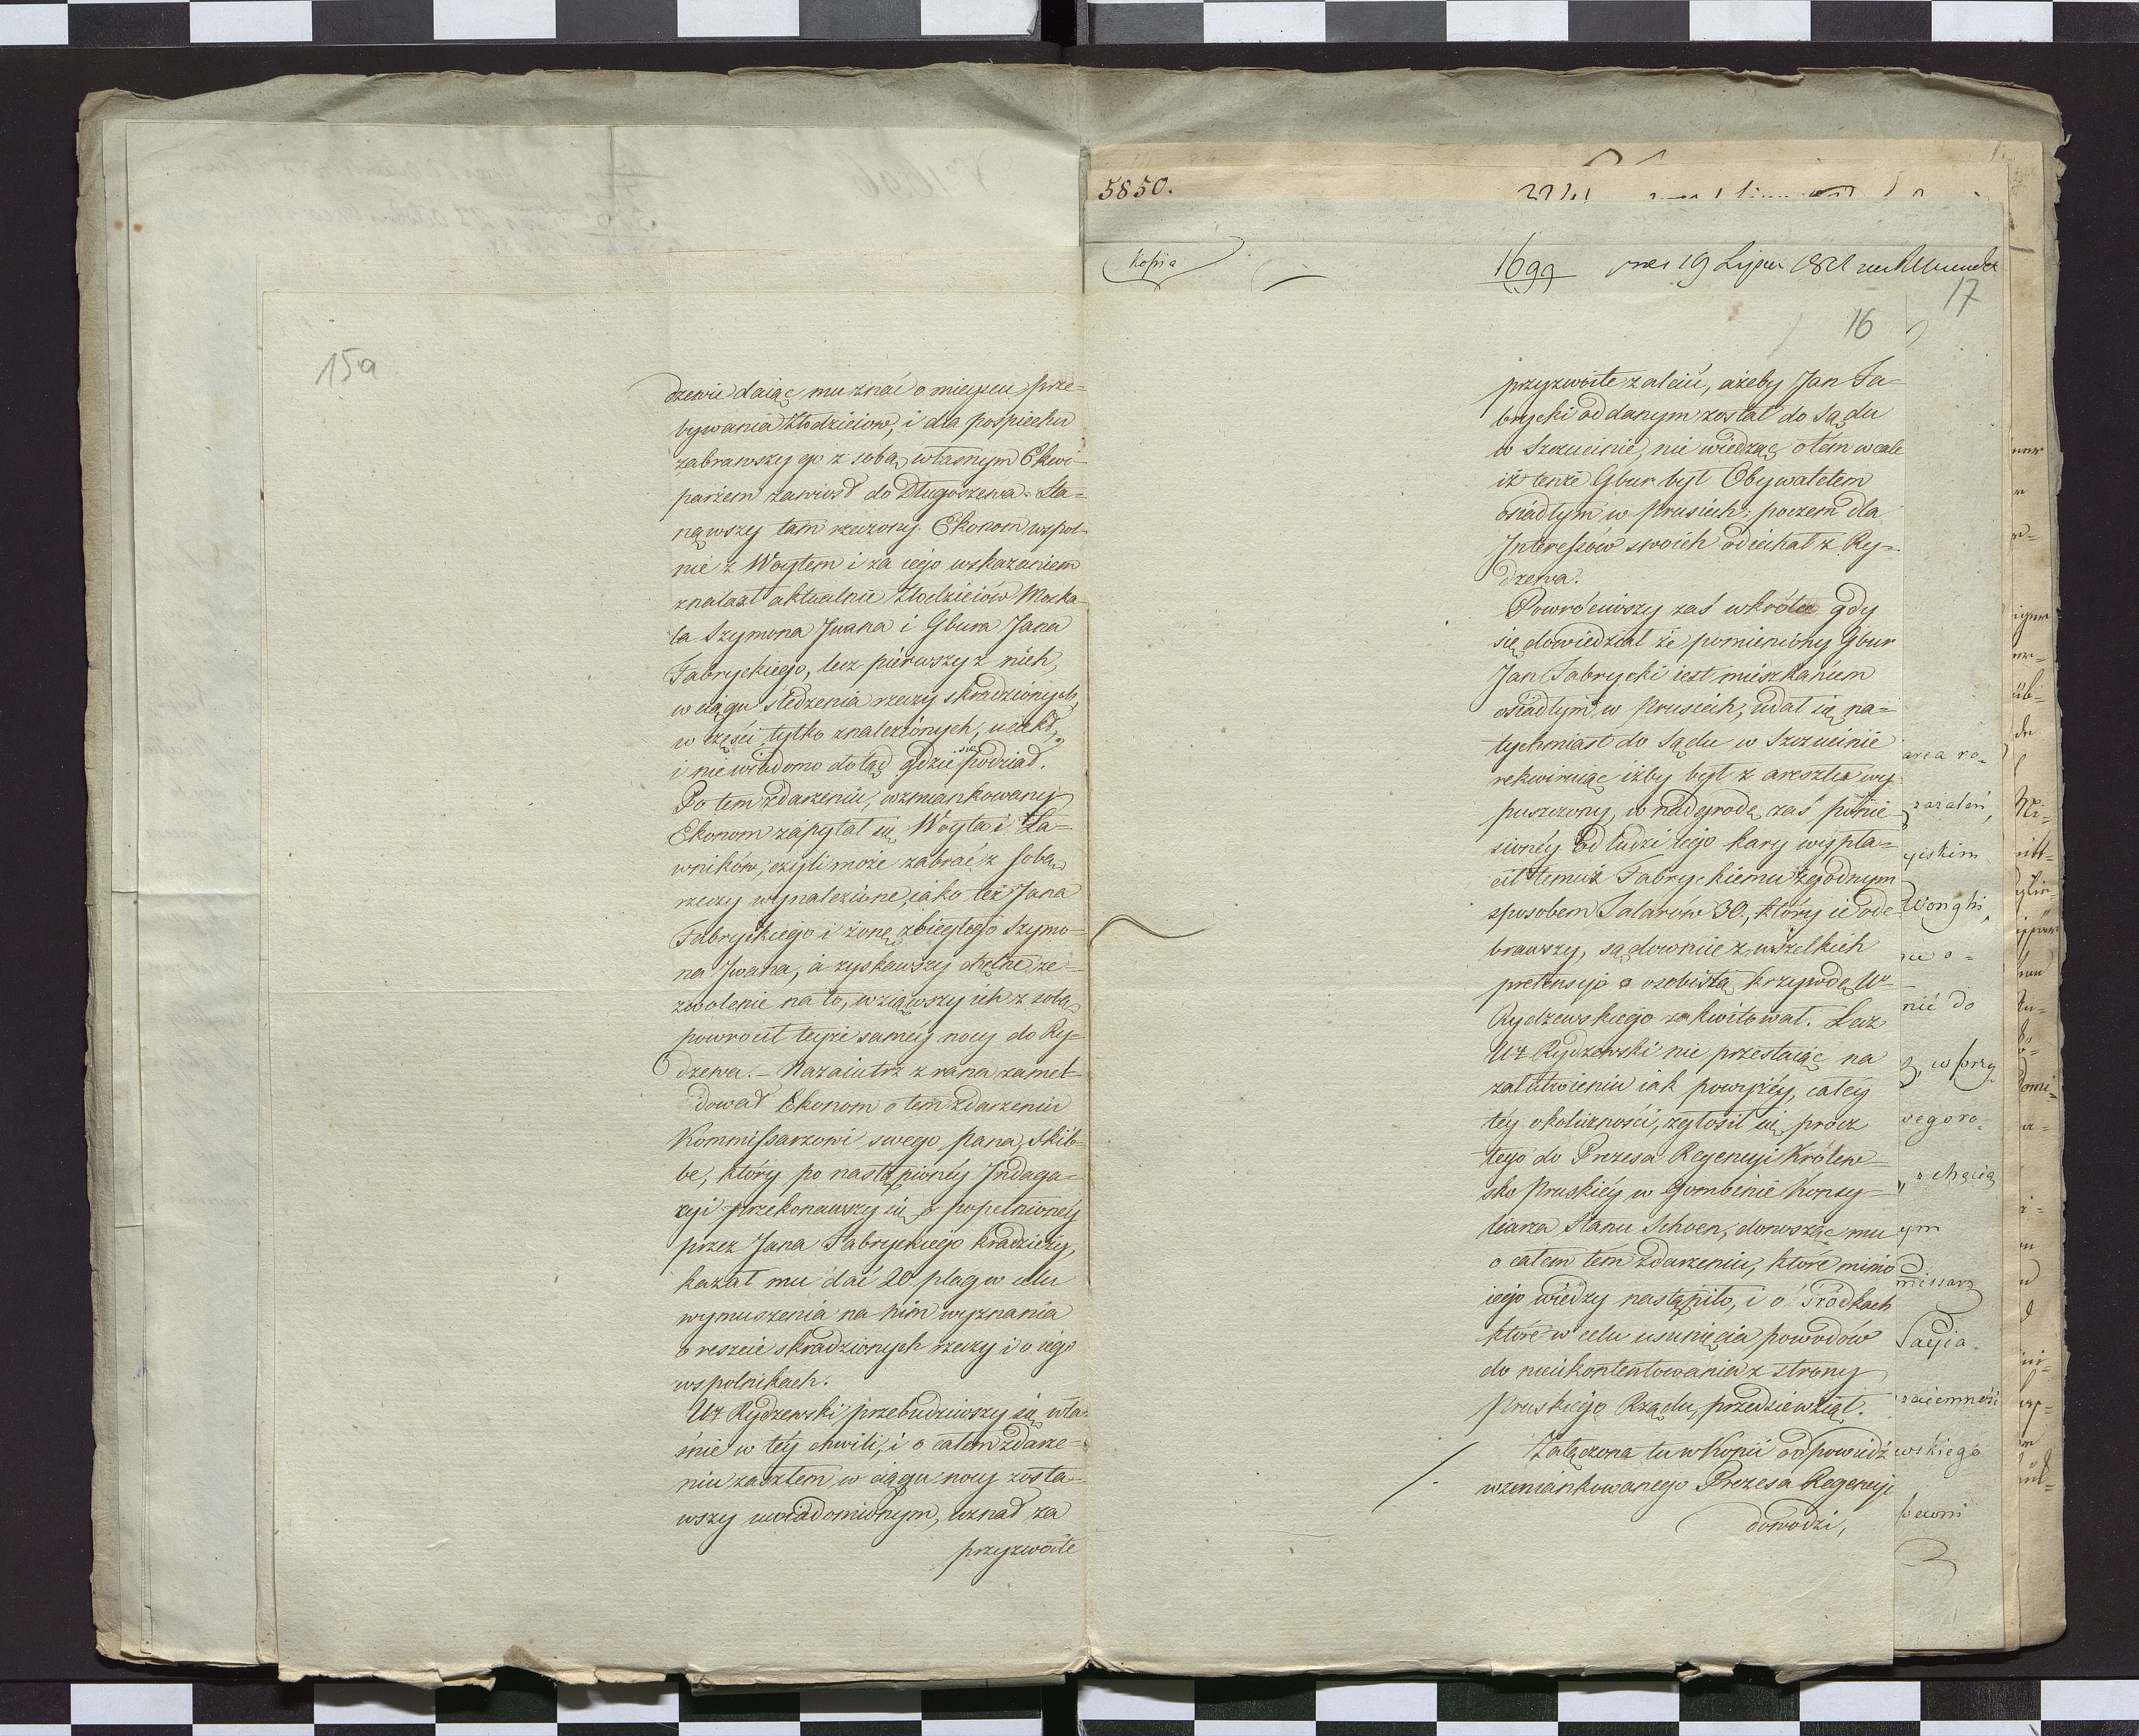 15a
dzewie daiąc mu znać o mieyscu prze=
bywania złodzieiow, i dla pośpiechu
zabrawszy go z sobą własnym Ekwi-
pażem zawiosł do Długoszewa. Sta=
nąwszy tam rzeczony Ekonom wspol-
nie z Woytem i za iego wskazaniem
znalazł aktualnie złodzieiów Moska-
la Szymona Jwana i Gbura Jana
Fabryckiego, lecz pierwszy z nich,
w ciągu śledzenia rzeczy skradzionych,
w części tylko znalezionych, uciekł,
i niewiadomo dotąd gdzie się podział.
Po tem zdarzeniu, wzmiankowany
Ekonom zapytał się Woyta i Ła=
wników, czyli może zabrać z sobą
rzeczy wynalezione, iako też Jana
Fabryckiego i żonę zbiegłego Szymo=
na Jwana, a zyskawszy chętne ze=
zwolenie na to, wziąwszy ich z sobą
powrocił teyże saméy nocy do Ry=
dzewa. – Nazaiutrz z rana zamel=
dował Ekonom o tem zdarzeniu
Kommissarzowi swego pana, Skib-
be, który po nastąpionéy Jndaga=
cyi przekonawszy się o popełnionéy
przez Jana Fabryckiego kradzieży,
kazał mu dać 20. plag w celu
wymuszenia na nim wyznania
o reszcie skradzionych rzeczy i o iego
wspolnikach.
Ur Rydzewski przebudziwszy się wła=
śnie w téy chwili, i o całem zdarze=
niu zaszłem w ciągu nocy zosta=
wszy uwiadomionym, uznał za
przyzwoite
5850.
Kopia
1699 19 Lipca 1821
17
16
przyzwoite zalecić, ażeby Jan Fa=
brycki oddanym został do Sądu
w Szczucinie, nie wiedząc o tém wcale
iż tenże Gbur był Obywatelem
osiadłym w Prusiech; poczem dla
Jnteressów swoich odiechał z Ry=
dzewa.
Powróciwszy zaś wkrótce gdy
się dowiedział że pomieniony Gbur
Jan Fabrycki iest mieszkańcem
osiadłym w Prusiech, udał się na=
tychmiast do Sądu w Szczucinie
rekwiruiąc iżby był z aresztu wy-
puszczony, w nadgrodę zaś ponie=
sionéy od ludzi iego kary wypła=
cił temuż Fabryckiemu zgodnym
sposobem Talarów 30., który ie ode-
brawszy, sądownie z wszelkich
pretensyi o osobistą krzywdę Ur
Rydzewskiego zakwitował. Lecz
Ur Rydzewski nie przestaiąc na
załatwieniu iak powyżéy, całéy
téy okoliczności, zgłosił się prócz
tego do Prezesa Regencyi Królew=
sko Pruskiéy w Gombinie Konsy=
liarza Stanu Schoen, donosząc mu
o całem tém zdarzeniu, które mimo
iego wiedzy nastąpiło, i o środkach
które w celu usunięcia powodów
do nieukontentowania z strony
Pruskiego Rządu, przedsiewziął.
Załączona tu w Kopii odpowiedź
wzmiankowanego Prezesa Regencyi
dowodzi,
zażaleń,
yiskim
nie o=
nić do
wegoro,
z chęcią
ym
missarz
wskiego